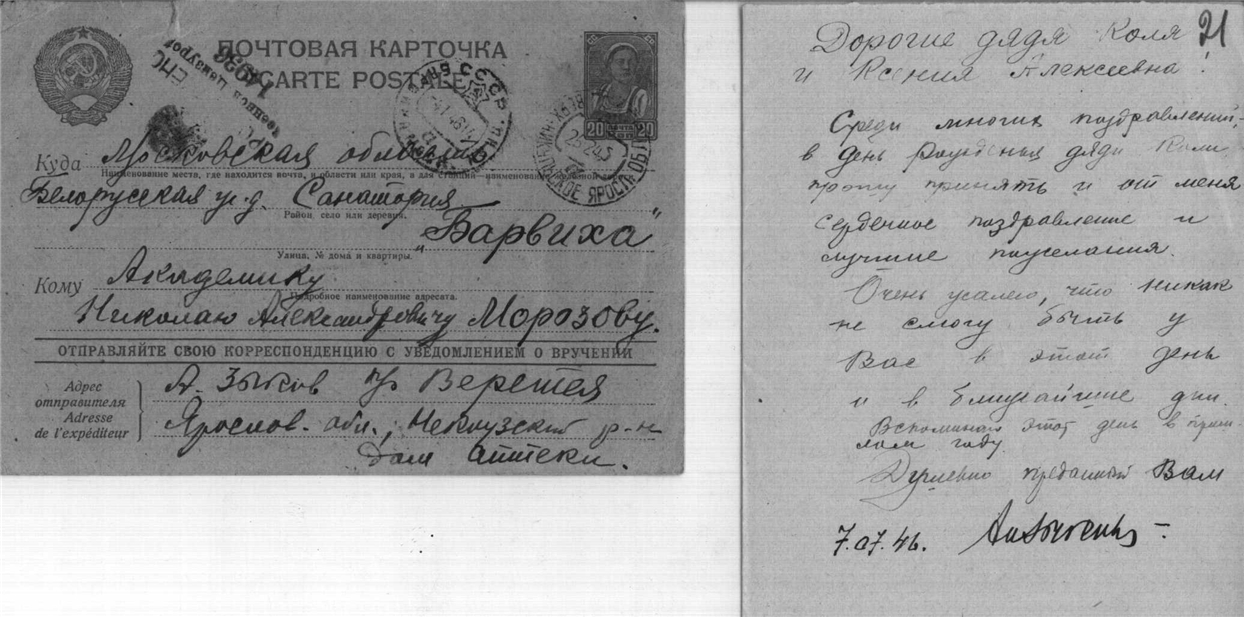 ПОЧТОВАЯ КАРТОЧКА
CARTE POSTALE
14036
20 ПОЧТА 20
Куда Московская область
Наименование места, где находится почта, и области или края, а для станций—наименование
Белорусская ж.д. Санатория
Район, село или деревня.
"Барвиха"
Улица, № дома и квартиры.
Кому Академику
Подробное наименование адресата.
Николаю Александровичу Морозову.
ОТПРАВЛЯЙТЕ СВОЮ КОРРЕСПОНДЕНЦИЮ С УВЕДОМЛЕНИЕМ О ВРУЧЕНИИ
Адрес
отправителя
Adresse
de l'expéditeur
А. Зыков п/о Веретея
Ярослов. обл., Некоузский р-н
дом аптеки.
21
Дорогие дядя Коля
и Ксения Алексеевна!
Среди многих поздравлений,
в день рожденья дяди Коли
прошу принять и от меня
сердечное поздравление и
лучшие пожелания.
Очень жалею, что никак
не смогу быть у
Вас в этот день
и в ближайшие дни.
Вспоминаю этот день в прош-
лом году.
Душевно преданный Вам
7.07.46.